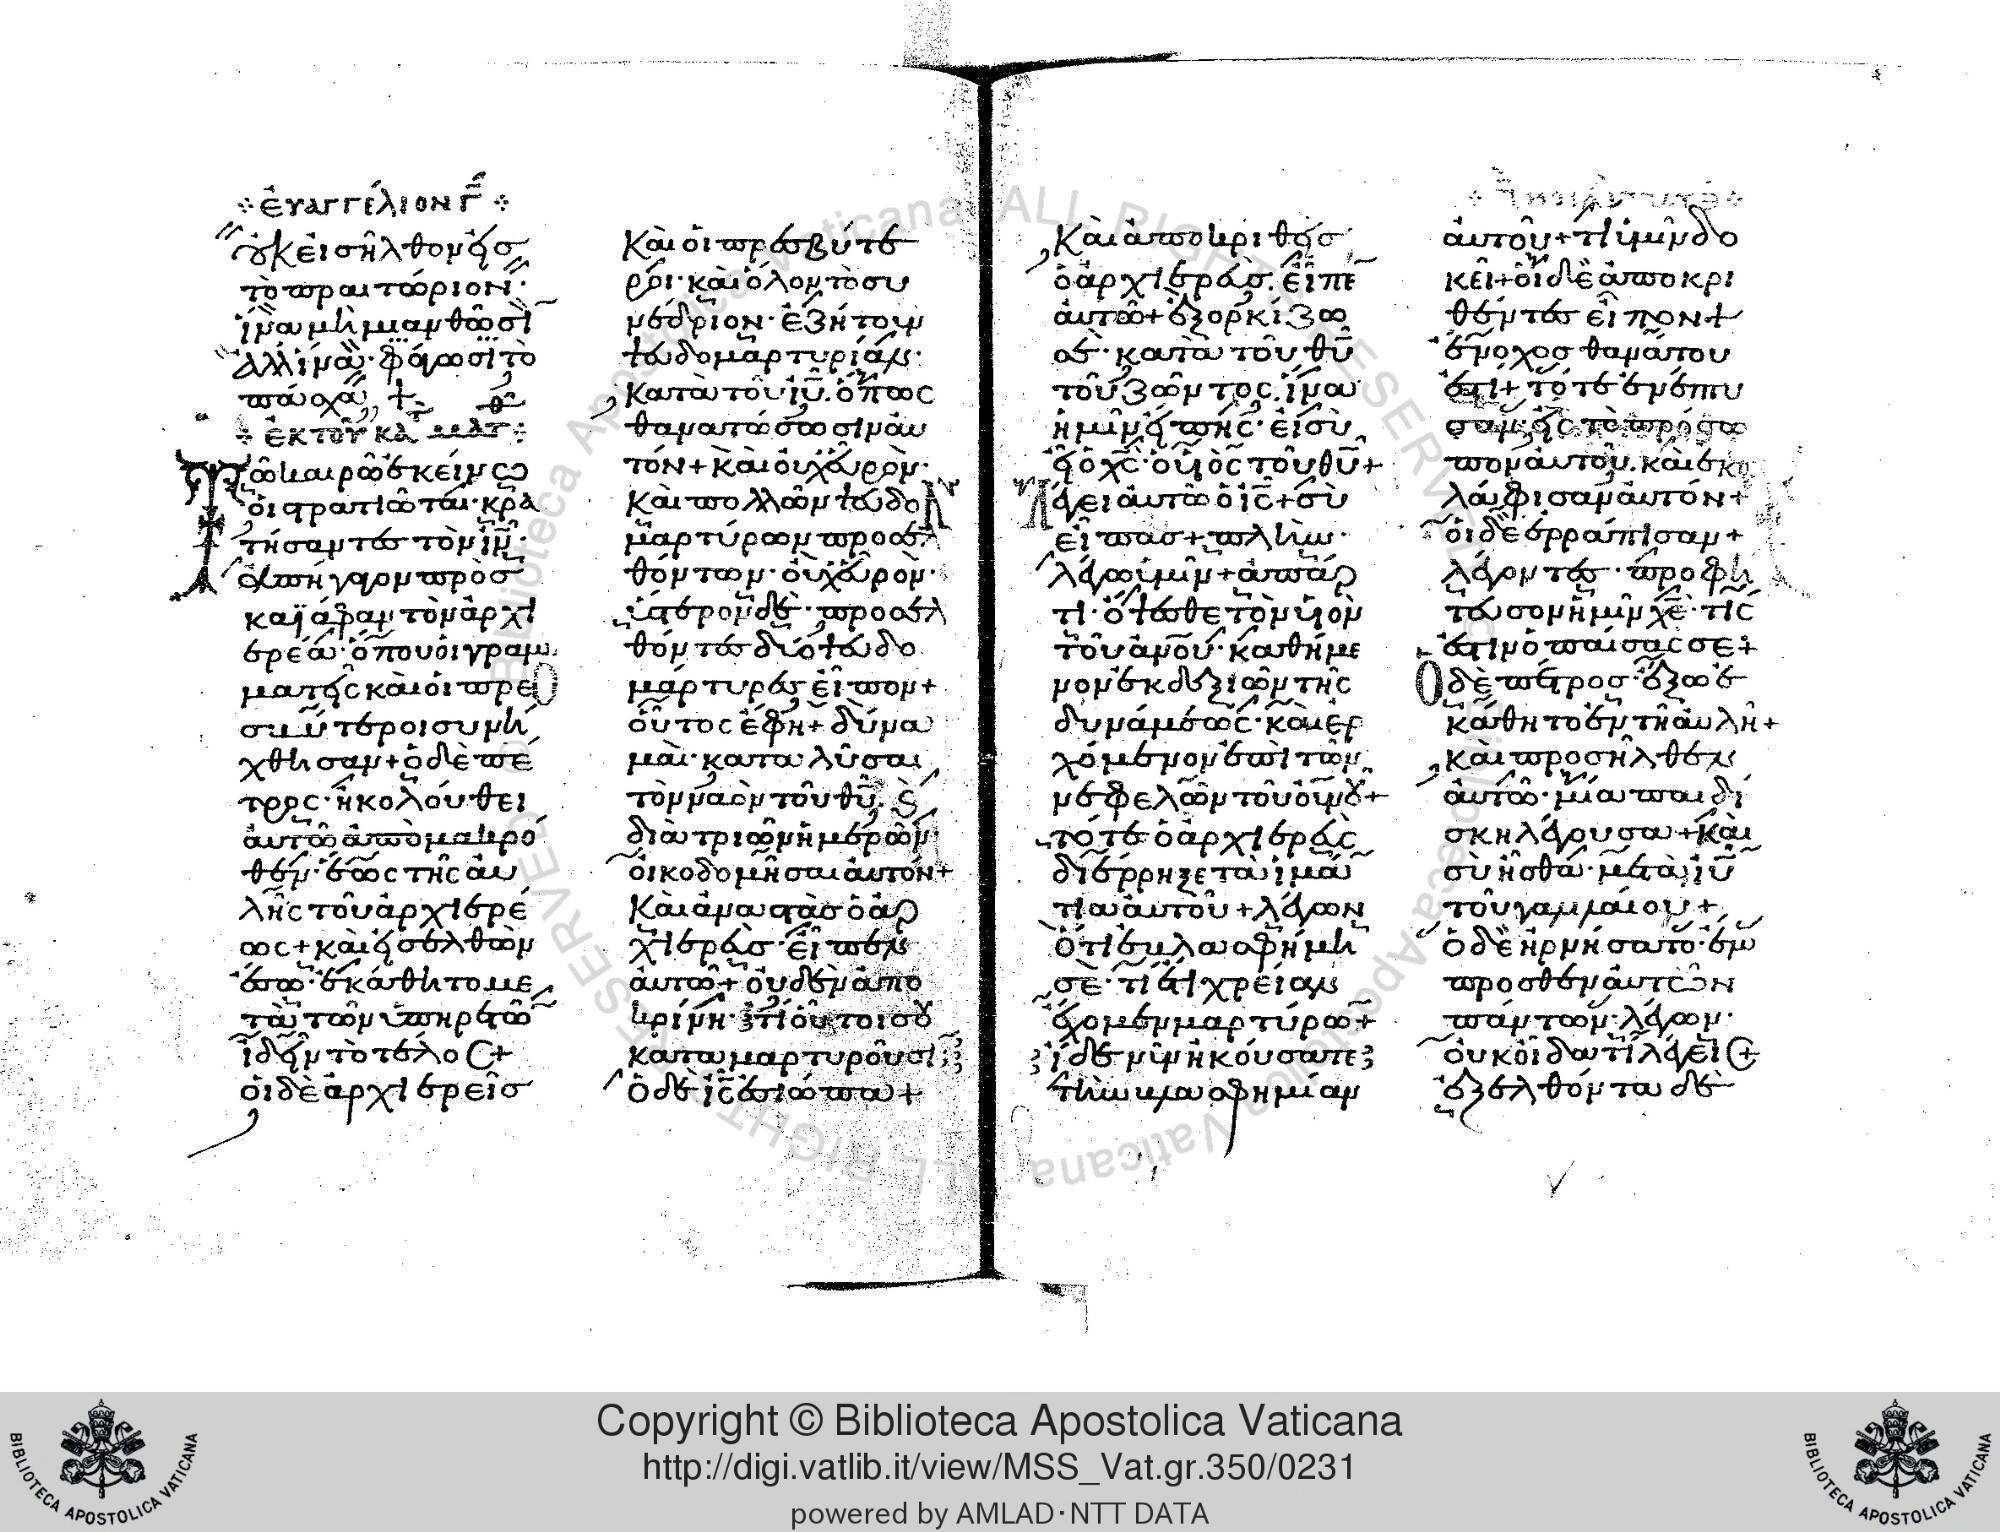 εὐαγγέλιον Γ̅
οὐκ εἰσῆλθον εἰς
τὸ πραιτώριον·
ἵνα μὴ μιανθῶσι
ἀλλ' ἵνα φάγωσι τὸ
πάσχα +
ἐκ τοῦ κατὰ ματθ
Τῶ καιρῶ ἐκείνω
οἱ στρατιῶται· κρα
τήσαντες τὸν ἰν̅·
ἀπήγαγον πρὸσ
καϊάφαν τὸν ἀρχι
ερέα· ὅπου οἱ γραμ
ματεῖς καὶ οἱ πρε
σβύτεροι συνή
χθησαν + ὁ δὲ πέ
τρος· ἠκολούθει
αὐτῶ ἀπὸ μακρό
θεν· ἕως τῆς αὐ
λῆς τοῦ ἀρχιερέ
ως + καὶ εἰσελθὼν
ἔσω· ἐκάθητο με
τὰ τῶν ὑπηρετῶ
ἰδεῖν τὸ τέλος +
οἱ δὲ ἀρχιερεῖσ
Καὶ οἱ πρεσβύτε
ροι· καὶ ὅλον τὸ συ
νέδριον· ἐζήτουν
ψευδομαρτυρίαν·
κατὰ τοῦ ἰυ̅· ὅπως
θανατώσωσιν αὐ
τόν + Καὶ οὐχ εὗρον·
Καὶ πολλῶν ψευδο
μαρτύρων προσελ
θόντων· οὐχ εὗρον·
ὕστερον δὲ· προσελ
θόντες δύο ψευδο
μάρτυρες εἶπον +
οὗτος ἔφη + δύνα
μαι· καταλῦσαι
τὸν ναὸν τοῦ θυ̅· καὶ
διὰ τριῶν ἡμερῶν
οἰκοδομῆσαι αὐτόν +
Καὶ ἀναστὰσ ὁ ἀρ
χιερεὺσ· εἶπεν
αὐτῶ + οὐδὲν ἀπο
κρίνη· τί οὗτοί σου
καταμαρτυροῦσι
Ὁ δὲ ἰς̅ ἐσιώπα +
Καὶ ἀποκριθεὶσ
ὁ ἀρχιερεὺσ· εἶπε
αὐτῶ + ἐξορκίζω
σε· κατὰ τοῦ θυ̅
τοῦ ζῶντος· ἵνα
ἡμῖν εἴπης· εἰ σὺ
εἶ ὁ χς̅· ὁ υἱὸς τοῦ θυ̅ +
Λέγει αὐτῶ ὁ ἰς̅ + σὺ
εἶπας + πλὴν·
λέγω ὑμῖν + ἀπ' ἄρ
τι· ὄψεσθε τὸν υἱὸν
τοῦ ἀνου̅· καθήμε
νον ἐκ δεξιῶν τῆς
δυνάμεως· καὶ ἐρ
χόμενον ἐπὶ τῶν
νεφελῶν τοῦ οὐνοῦ +
τότε ὁ ἀρχιερεὺς
διέρρηξε τὰ ἱμά
τια αὐτοῦ + λέγων
ὅτι ἐβλασφήμη
σε· τί ἔτι χρείαν
ἔχομεν μαρτύρω +
ἴδε νῦν ἠκούσατε
τὴν βλασφημίαν
αὐτοῦ + τί ὑμῖν δο
κεῖ + οἱ δὲ ἀποκρι
θέντες εἶπον +
ἔνοχοσ θανάτου
ἐστί + τότε ἐνέπτυ
σαν· εἰς τὸ πρόσω
πον αὐτοῦ· καὶ ἐκο
λάφισαν αὐτόν +
οἱ δὲ ἐρράπισαν +
λέγοντες· προφή
τευσον ἡμῖν χε̅· τίς
ἐστιν ὁ παίσας σε +
Ὁ δὲ πέτροσ· ἔξω ἐ
κάθητο ἐν τῆ αὐλῆ +
καὶ προσῆλθεν
αὐτῶ· μία παιδί
σκη λέγουσα + καὶ
σὺ ἦσθα· μετὰ ἰυ̅
τοῦ γαλιλαίου +
ὁ δὲ ἠρνήσατο· ἔμ
προσθεν αὐτῶν
πάντων· λέγων·
οὐκ οἶδα τί λέγεις +
ἐξελθόντα δὲ
Copyright © Biblioteca Apostolica Vaticana
http://digi.vatlib.it/view/MSS_Vat.gr.350/0231
powered by AMLAD·NTT DATA
BIBLIOTECA APOSTOLICA VATICANA
BIBLIOTECA APOSTOLICA VATICANA